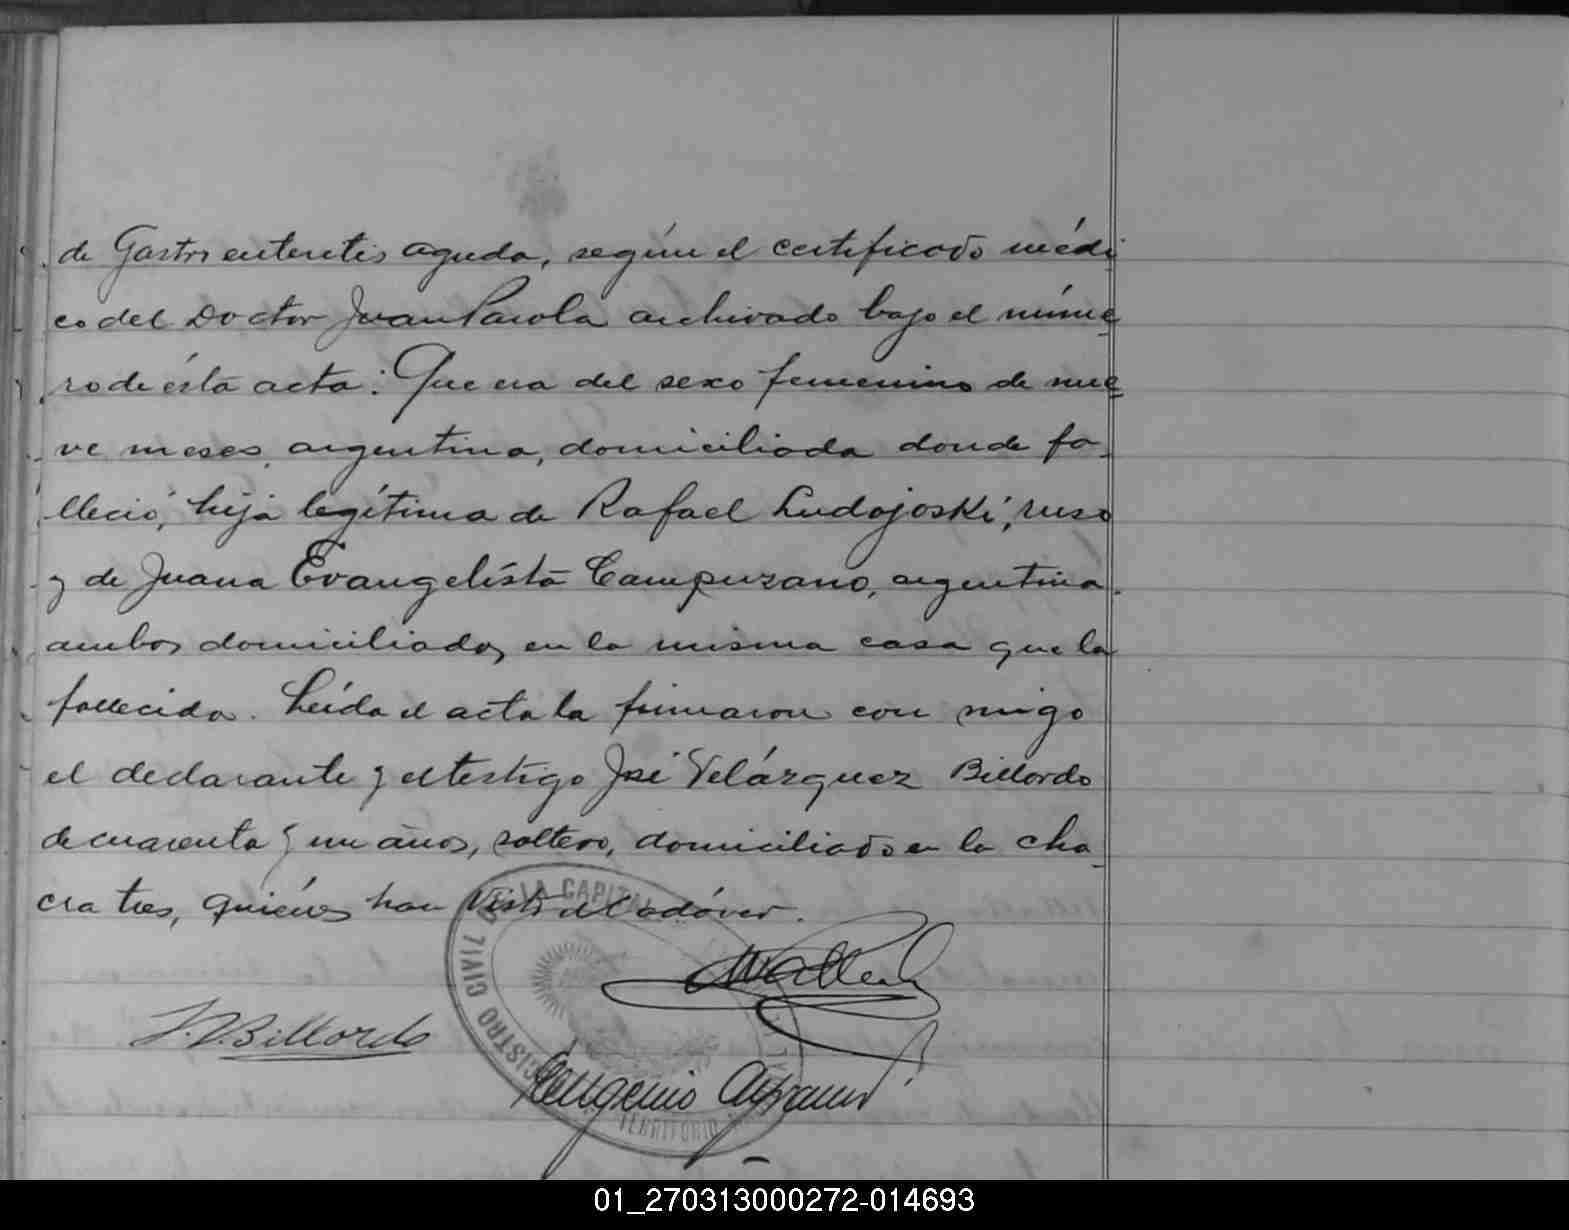 de Gastro enteretis aguda, según el certificado médi
co del Doctor Juan Parola archivado bajo el núme
ro de ésta acta: Que era del sexo femenino de nue
ve meses, argentina, domiciliada donde fa-
lleció, hija legítima de Rafael Ludojoski, ruso
y de Juana Evangelista Campuzano, argentina.
ambos domiciliados en la misma casa que la
fallecida. Leída el acta la firmaron con migo
el declarante y el testigo José Velázquez Billordo
de cuarenta y un años, soltero, domiciliado en la cha-
cra tres, quiénes han visto el cadáver.
REGISTRO CIVIL DE LA CAPITAL
J. V. Billordo
Eugenio
TERRITORIO
01_270313000272-014693